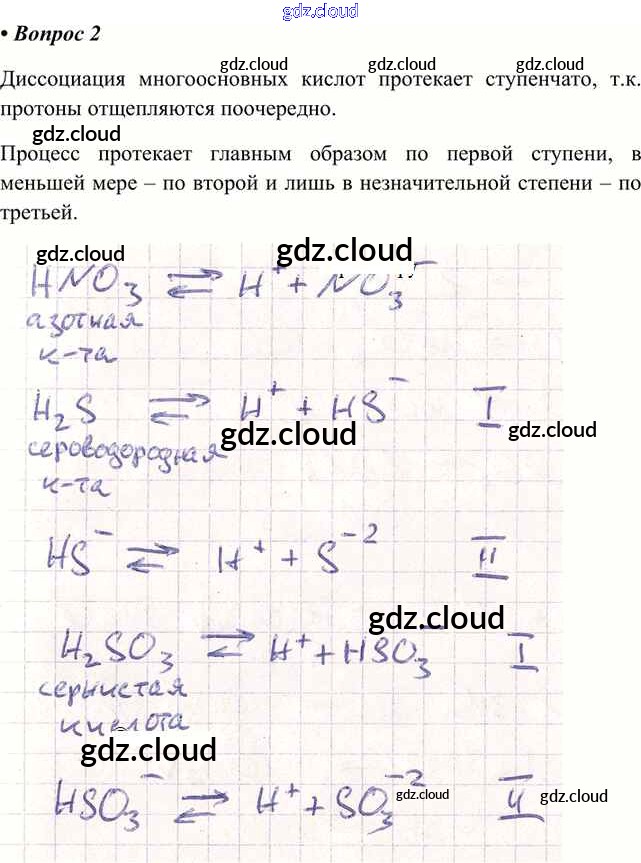 gdz.cloud
• Вопрос 2
gdz.cloud gdz.cloud gdz.cloud
Диссоциация многоосновных кислот протекает ступенчато, т.к.
протоны отщепляются поочередно.
gdz.cloud
Процесс протекает главным образом по первой ступени, в
меньшей мере – по второй и лишь в незначительной степени – по
третьей.
gdz.cloud gdz.cloud
HNO₃ ⇄ H⁺ + NO₃⁻
азотная
к-та
H₂S ⇄ H⁺ + HS⁻ I
gdz.cloud gdz.cloud
сероводородная
к-та
HS⁻ ⇄ H⁺ + S⁻² II
gdz.cloud
H₂SO₃ ⇄ H⁺ + HSO₃⁻ I
сернистая
кислота
gdz.cloud
HSO₃⁻ ⇄ H⁺ + SO₃⁻² II
gdz.cloud gdz.cloud